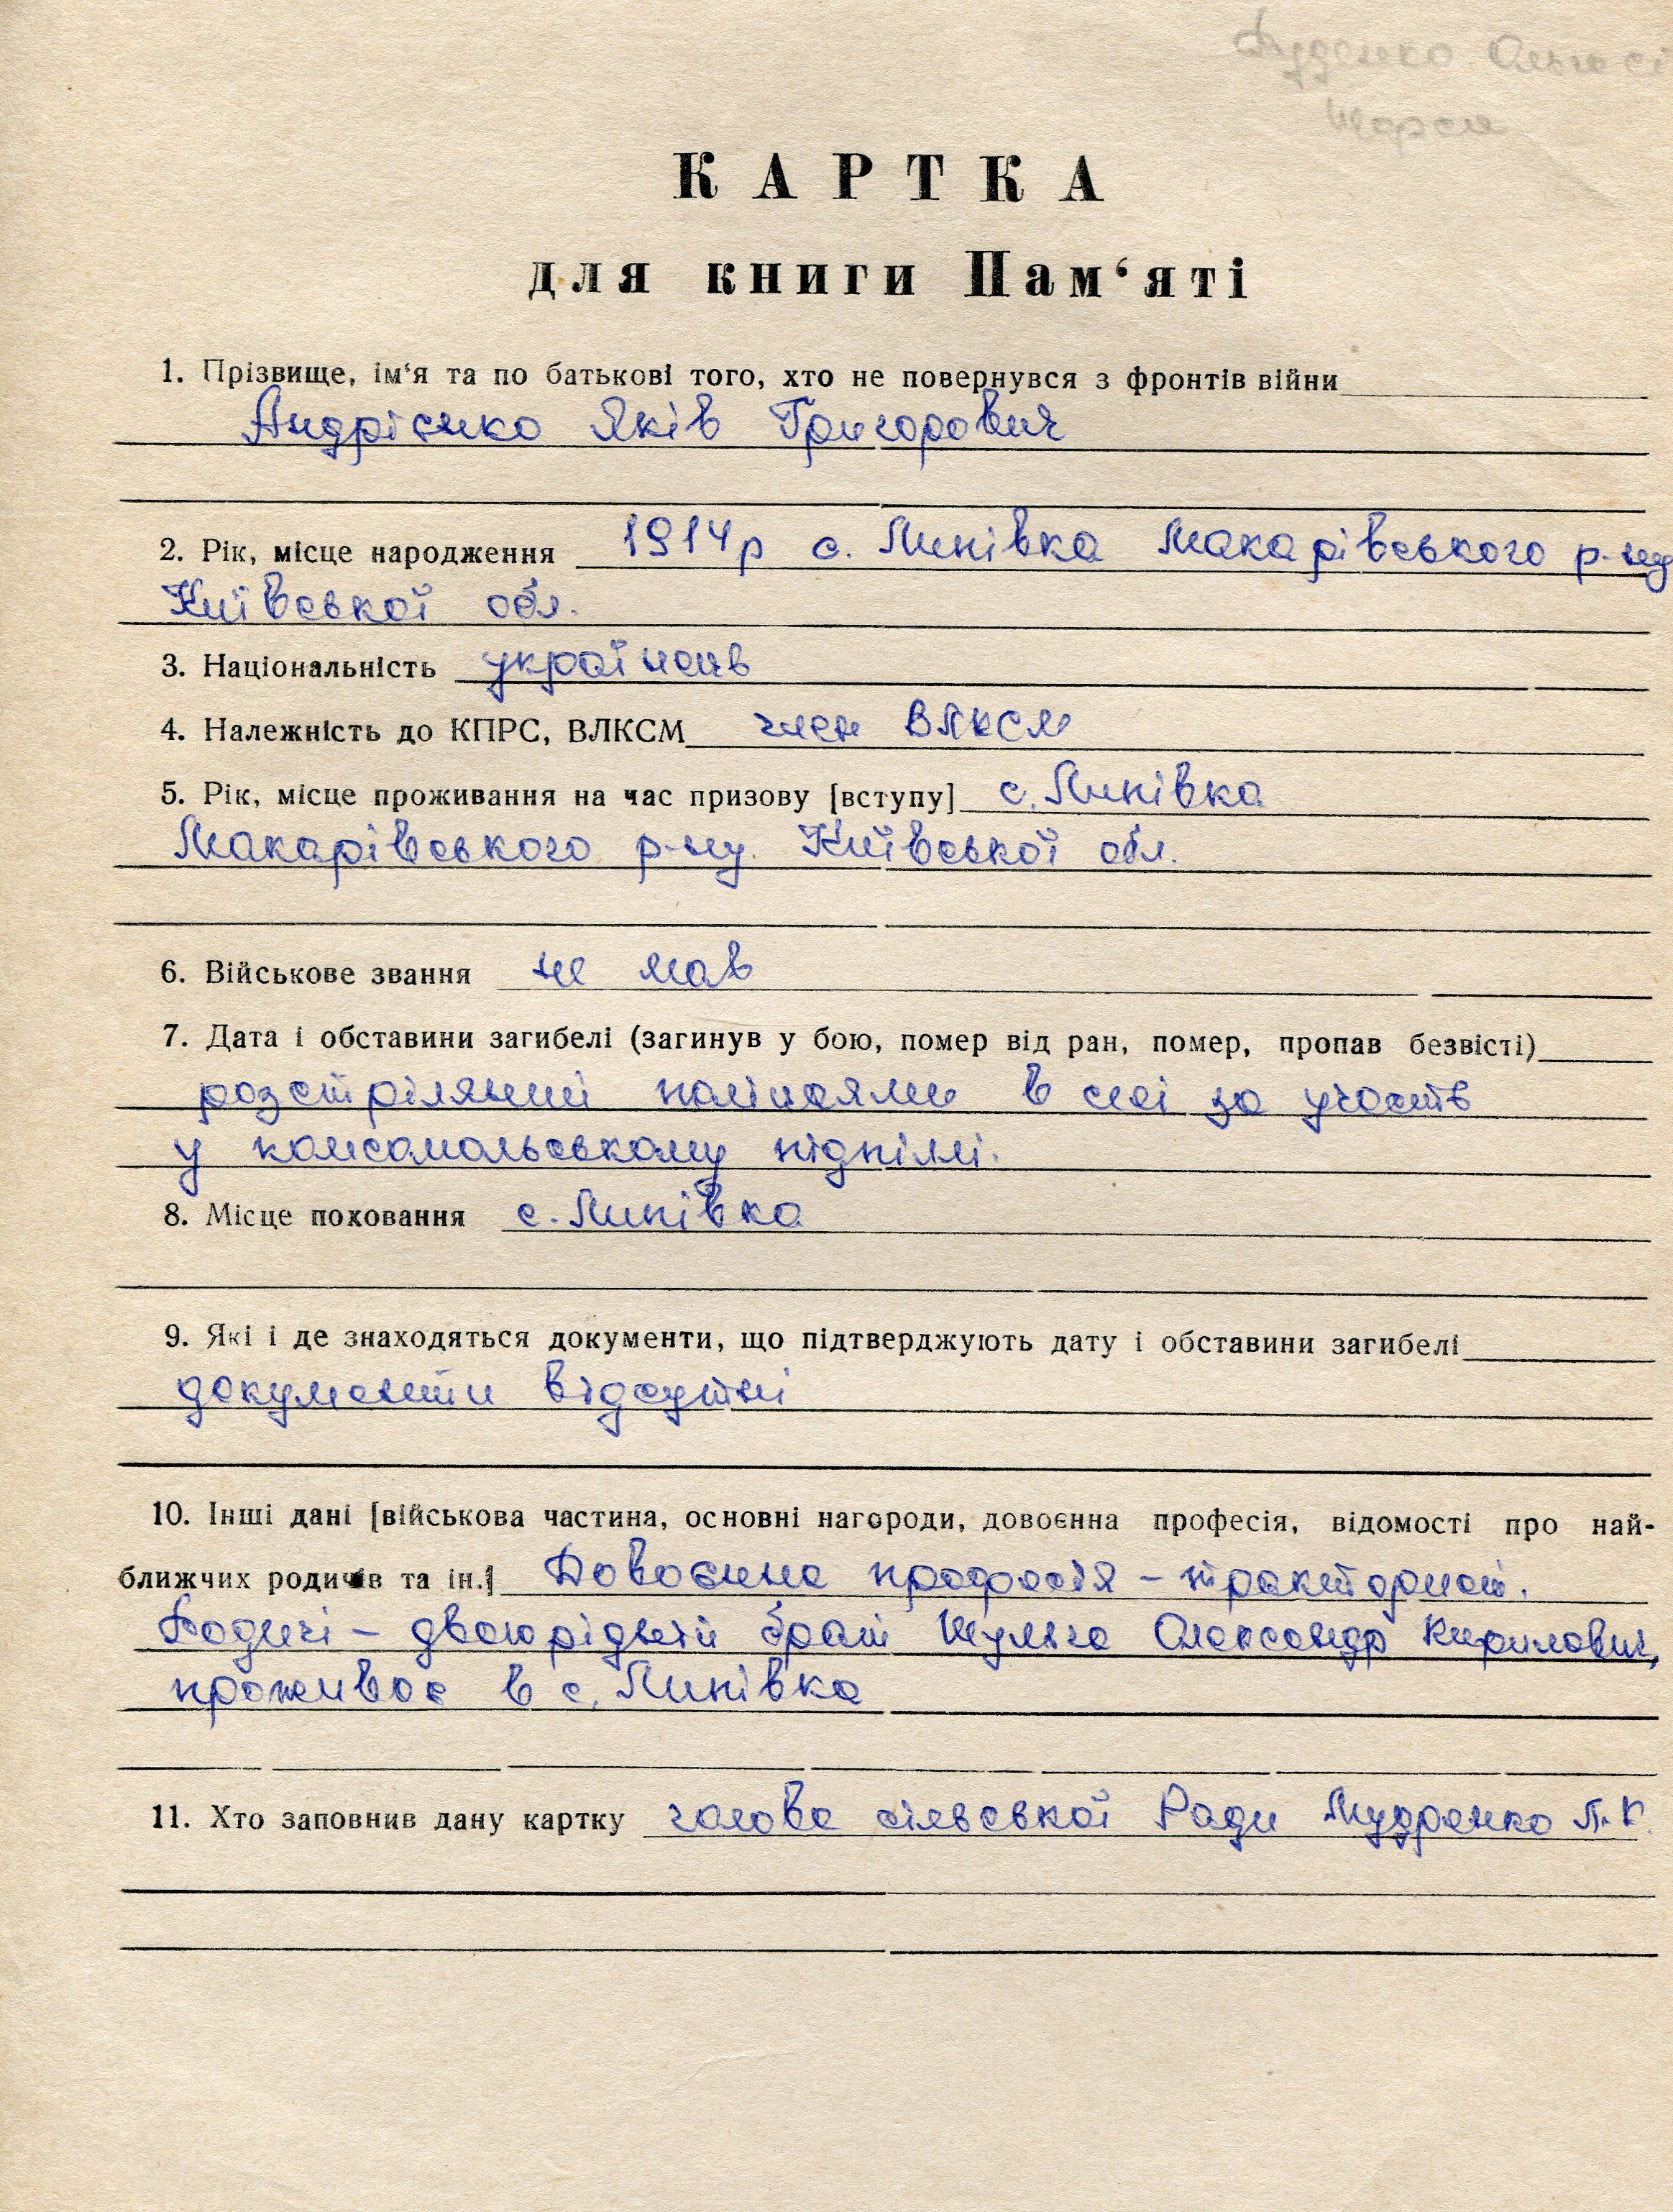 КАРТКА
для книги Пам‘яті
1. Прізвище, ім‘я та по батькові того, хто не повернувся з фронтів війни
Андрієнко Яків Григорович
2. Рік, місце народження 1914р с. Липівка Макарівського р-ну
Київської обл.
3. Національність українець
4. Належність до КПРС, ВЛКСМ член ВЛКСМ
5. Рік, місце проживання на час призову [вступу] с. Липівка
Макарівського р-ну Київської обл.
6. Військове звання не мав
7. Дата і обставини загибелі (загинув у бою, помер від ран, помер, пропав безвісті)
розстріляний поліцаями в селі за участь
у комсомольському підпіллі.
8. Місце поховання с. Липівка
9. Які і де знаходяться документи, що підтверджують дату і обставини загибелі
документи відсутні
10. Інші дані [військова частина, основні нагороди, довоєнна професія, відомості про най-
ближчих родичів та ін.] Довоєнна професія – тракторист.
Родичі – двоюрідний брат Шульга Олександр Кирилович,
проживає в с. Липівка
11. Хто заповнив дану картку голова сільської Ради Мудренко П.К.